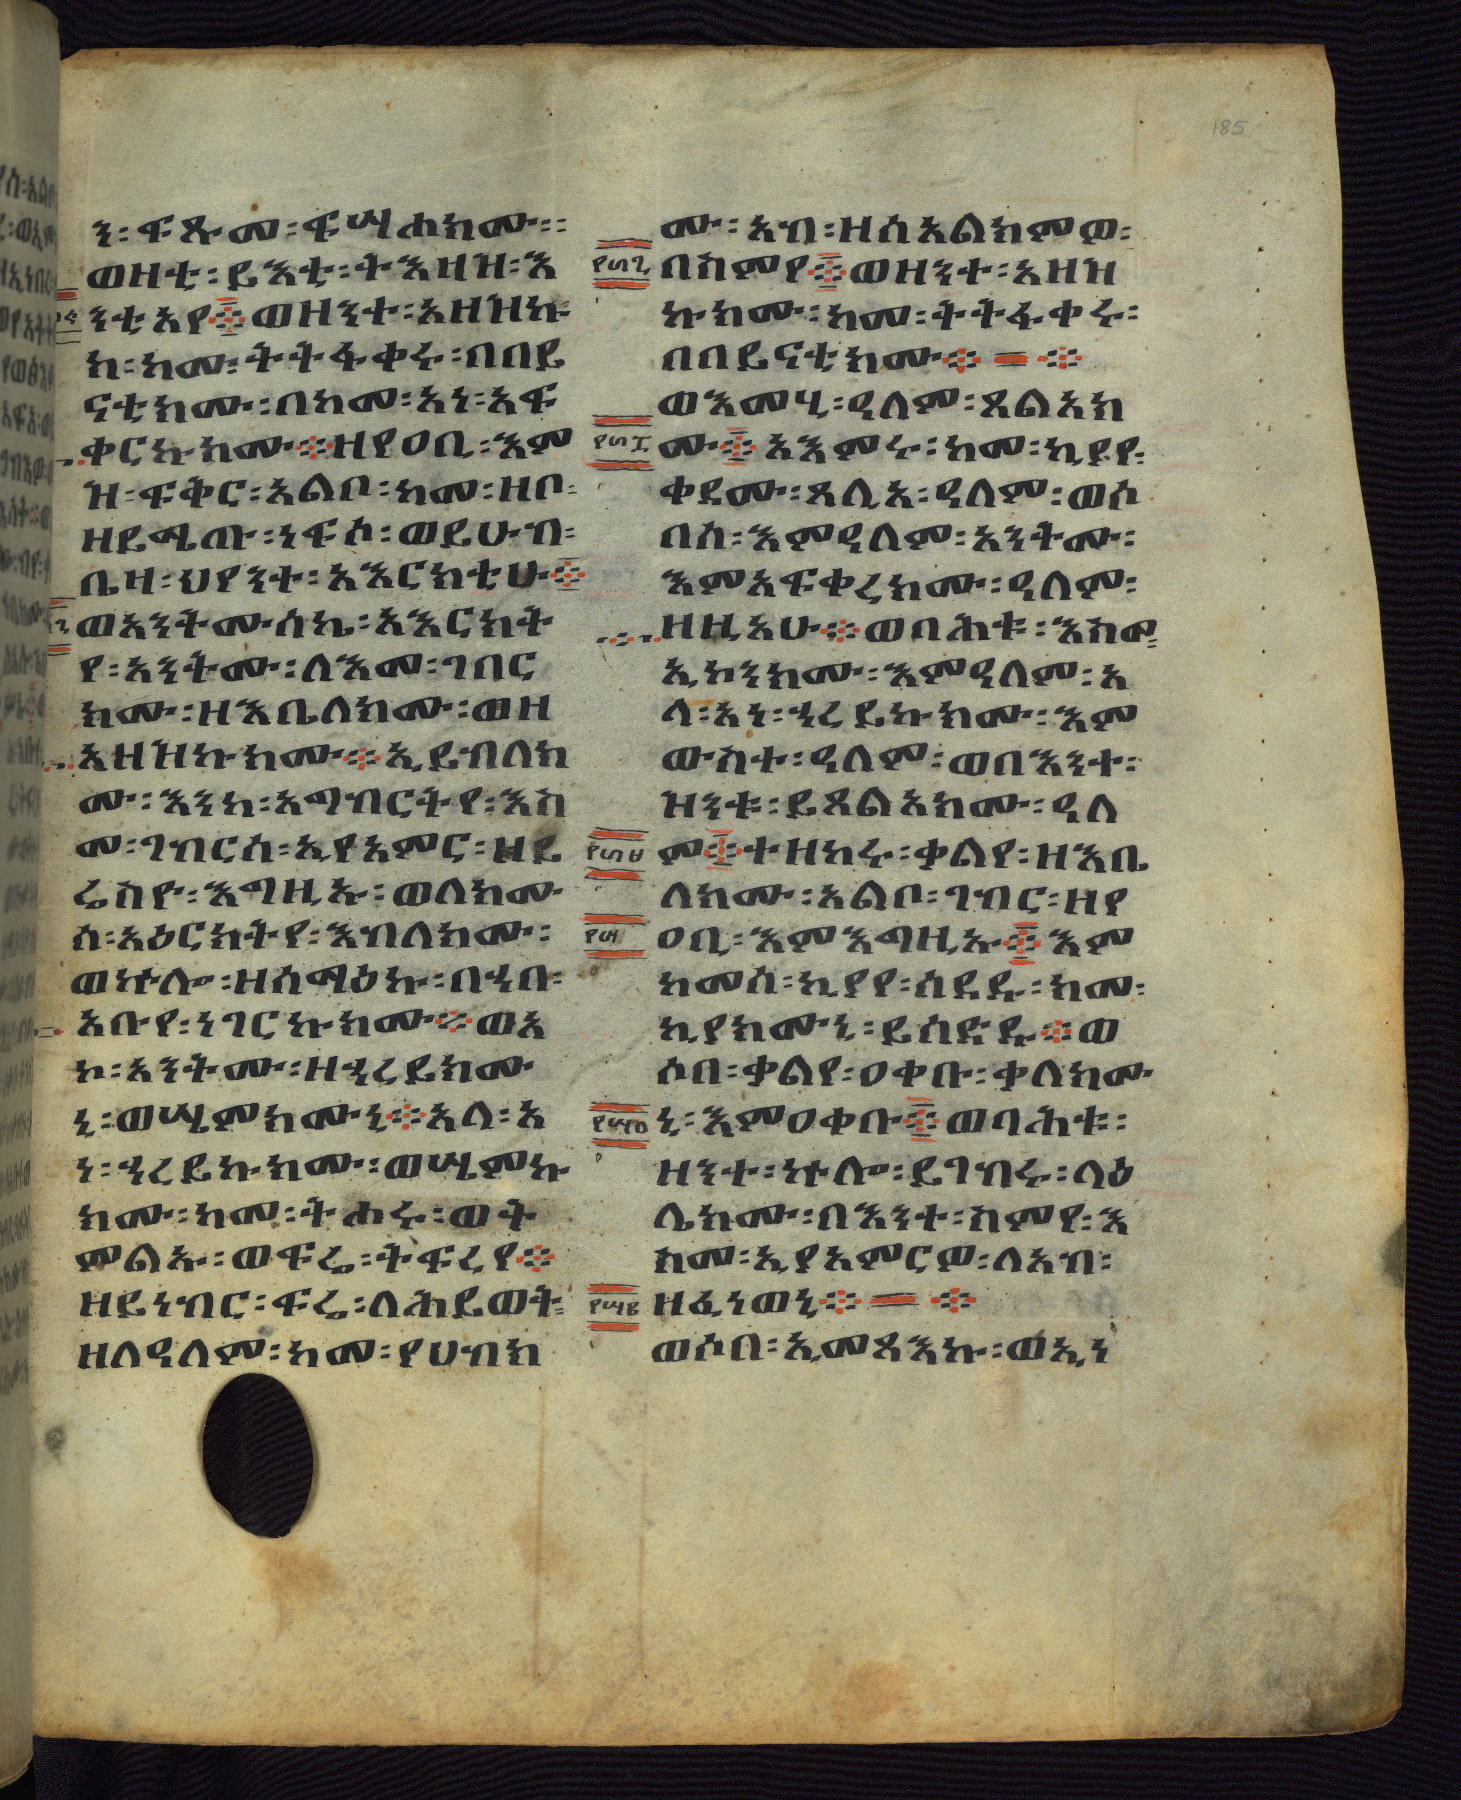 185
ነ፡ፍጹመ፡ፍሣሐክሙ፡፡
ወዛቲ፡ይእቲ፡ትእዛዝ፡እ
ንቲአየ፨ወዘንተ፡አዘዝኩ
ክ፡ክሙ፡ትትፋቀሩ፡በበይ
ናቲክሙ፡በከመ፡አነ፡አፍ
ቀርኩክሙ፨ዘየዐቢ፡እም
ዝ፡ፍቅር፡አልቦ፡ከመ፡ዘቦ፡
ዘይሜጡ፡ነፍሶ፡ወይሁብ፡
ቤዛ፡ህየንተ፡አእርክቲሁ፨
ወአንትሙሰኬ፡አእርክት
የ፡አንትሙ፡ለእመ፡ገበር
ክሙ፡ዘእቤለክሙ፡ወዘ
አዘዝኩክሙ፨ኢይብለክ
ሙ፡እንከ፡አግብርትየ፡እስ
መ፡ገብርሰ፡ኢየአምር፡ዘይ
ሬስዮ፡እግዚኡ፡ወለክሙ
ሰ፡አዕርክትየ፡እብለክሙ፡
ወኵሎ፡ዘሰማዕኩ፡በኀበ፡
አቡየ፡ነገርኩክሙ፨ወአ
ኮ፡አንትሙ፡ዘኀረይክሙ
ኒ፡ወሤምክሙኒ፨አላ፡አ
ነ፡ኀረይኩክሙ፡ወሤምኩ
ክሙ፡ከመ፡ትሐሩ፡ወት
ምልኡ፡ወፍሬ፡ትፍረዩ፨
ዘይነብር፡ፍሬ፡ለሕይወት፡
ዘለዓለም፡ከመ፡የሀብክ
ሙ፡አብ፡ዘሰአልክምዎ፡
በስምየ፨ወዘንተ፡አዘዝ
ኩክሙ፡ከመ፡ትትፋቀሩ፡
በበይናቲክሙ፨
ወእመሂ፡ዓለም፡ጸልአክ
ሙ፨አእምሩ፡ከመ፡ኪያየ፡
ቀደሙ፡ጸሊአ፡ዓለም፡ወሶ
በሰ፡እምዓለም፡አንትሙ፡
እምአፍቀረክሙ፡ዓለም፡
ዘዚአሁ፨ወባሕቱ፡እስመ፡
ኢኮንክሙ፡እምዓለም፡አ
ላ፡አነ፡ኀረይኩክሙ፡እም
ውስተ፡ዓለም፡ወበእንተ፡
ዝንቱ፡ይጸልአክሙ፡ዓለ
ም፨ተዘከሩ፡ቃልየ፡ዘእቤ
ለክሙ፡አልቦ፡ገብር፡ዘየ
ዐቢ፡እምእግዚኡ፨እም
ከመሰ፡ኪያየ፡ሰደዱ፡ከመ፡
ኪያክሙኒ፡ይሰድዱ፨ወ
ሶበ፡ቃልየ፡ዐቀቡ፡ቃለክሙ
ኒ፡እምዐቀቡ፨ወባሕቱ፡
ዘንተ፡ኵሎ፡ይገብሩ፡ላዕ
ሌክሙ፡በእንተ፡ስምየ፡እ
ስመ፡ኢያአምርዎ፡ለአብ፡
ዘፈነወኒ፨
ወሶበ፡ኢመጻእኩ፡ወኢነ